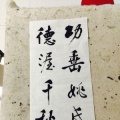 功垂姚氏
德渥千秋